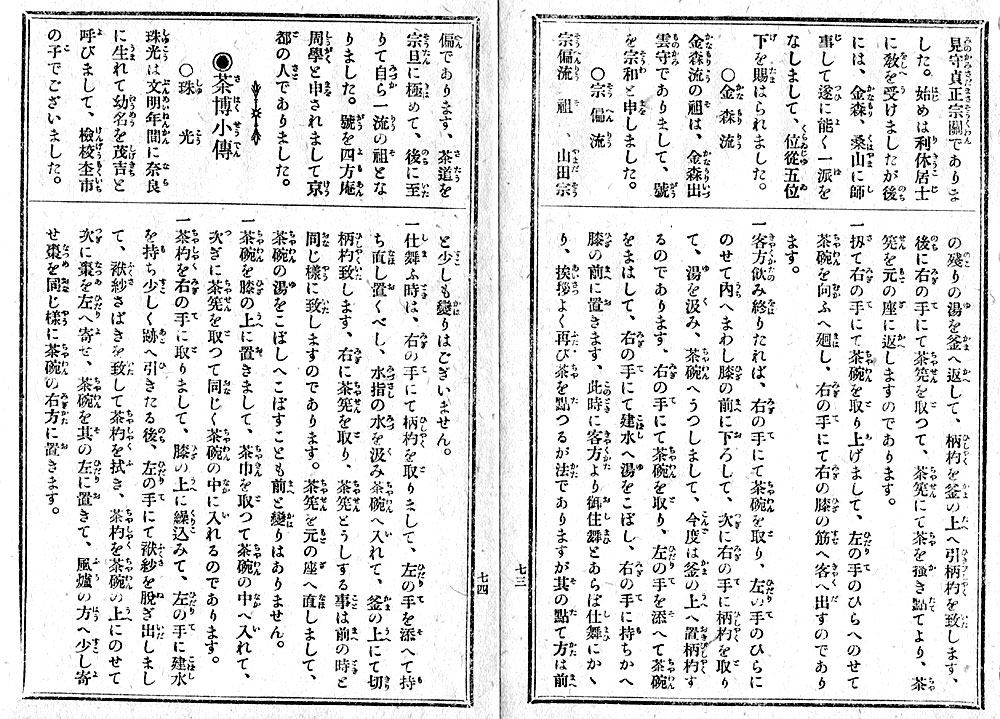 見守貞正宗關でありま
した。始めは利休居士
に教を受けましたが後
には、金森、桑山に師
事して遂に能く一派を
なしまして、位從五位
下を賜はられました。
○金森流
金森流の祖は、金森出
雲守でありまして、號
を宗和と申しました。
○宗偏流
宗偏流 祖 、山田宗
の殘りの湯を釜へ返して、柄杓を釜の上へ引柄杓を致します、
後に右の手にて茶筅を取つて、茶筅にて茶を強き點てより、茶
筅を元の座に返しますのであります。
一扨て右の手にて茶碗を取り上げまして、左の手のひらへのせて
茶碗を向ふへ廻し、右の手にて右の膝の筋へ客へ出すのであり
ます。
一客方飮み終りたれば、右の手にて茶碗を取り、左の手のひらに
のせて内へまわし膝の前に下ろして、次に右の手に柄杓を取り
て、湯を汲み、茶碗へうつしまして、今度は釜の上へ置柄杓す
るのであります、右の手にて茶碗を取り、左の手を添へて茶碗
をまはして、右の手にて建水へ湯をこぼし、右の手に持ちかへ
膝の前に置きます、此時に客方より御仕舞とあらば仕舞にかゝ
り、挨拶よく再び茶を點つるが法でありますが其の點て方は前
七三
偏であります、茶道を
宗旦に極めて、後に至
りて自ら一流の祖とな
りました。號を四方庵
周學と申されまして京
都の人でありました。
◉茶博小傳
○珠光
珠光は文明年間に奈良
に生れて幼名を茂吉と
呼びまして、檢校杢市
の子でございました。
と少しも變りはございません。
一仕舞ふ時は、右の手にて柄杓を取りまして、左の手を添へて持
ち直し置くべし、水指の水を汲み茶碗へ入れて、釜の上にて切
柄杓致します、右に茶筅を取り、茶筅とうしする事は前の時と
同じ樣に致しますのであります。茶筅を元の座へ直しまして、
茶碗の湯をこぼしへこぼすことも前と變りはありません。
一茶碗を膝の上に置きまして、茶巾を取つて茶碗の中へ入れて、
次ぎに茶筅を取つて同じく茶碗の中に入れるのであります。
一茶杓を右の手に取りまして、膝の上に繰込みて、左の手に建水
を持ち少しく跡へ引きたる後、左の手にて袱紗を脱ぎ出しまし
て、袱紗さばきを致して茶杓を拭き、茶杓を茶碗の上にのせて
次に棗を左へ寄せ、茶碗を其の左に置きて、風爐の方へ少し寄
せ棗を同じ樣に茶碗の右方に置きます。
七四